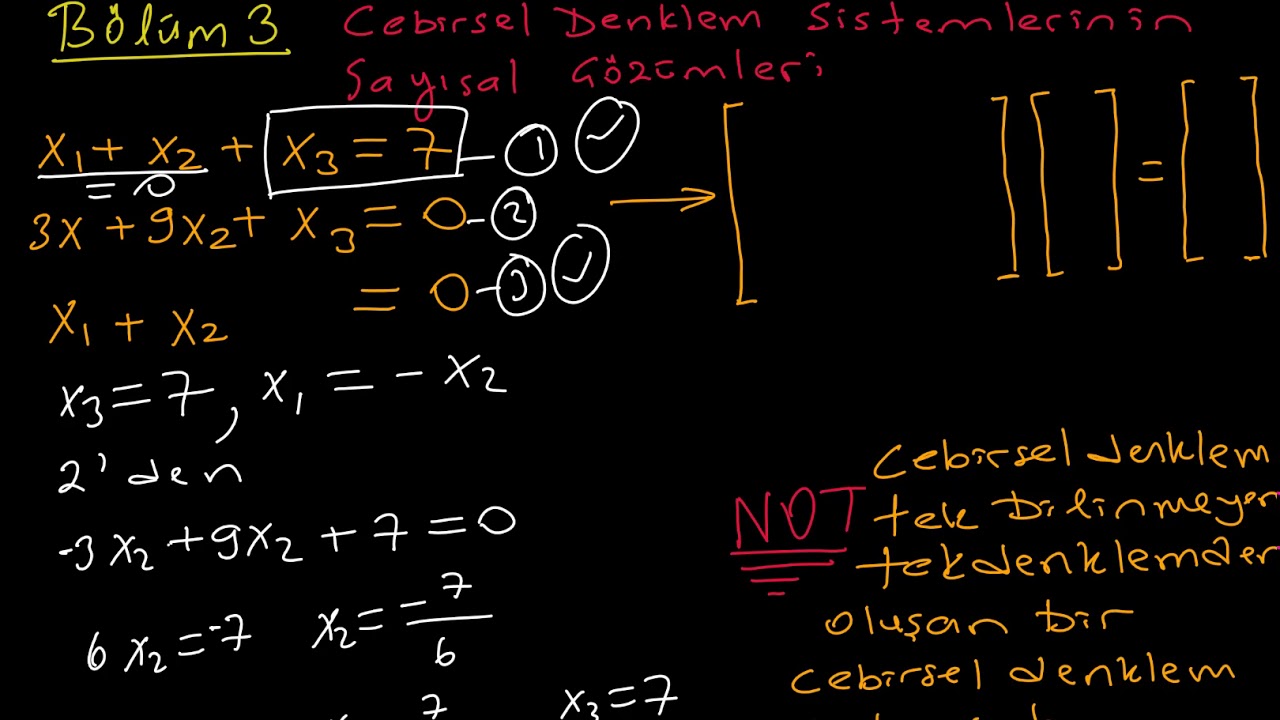 Bölüm 3 Cebirsel Denklem Sistemlerinin
Sayısal Gözümleri
x₁ + x₂ + x₃ = 7 - ① ✓
= 0
3x + 9x₂ + x₃ = 0 - ② → [ ] [ ] = [ ]
x₁ + x₂ = 0 - ③ ✓
x₃ = 7, x₁ = - x₂
2' den
-3x₂ + 9x₂ + 7 = 0
6x₂ = -7 x₂ = -7/6
7 x₃ = 7
NOT Cebirsel denklem
tek bilinmeyen
tek denklemden
oluşan bir
cebirsel denklem